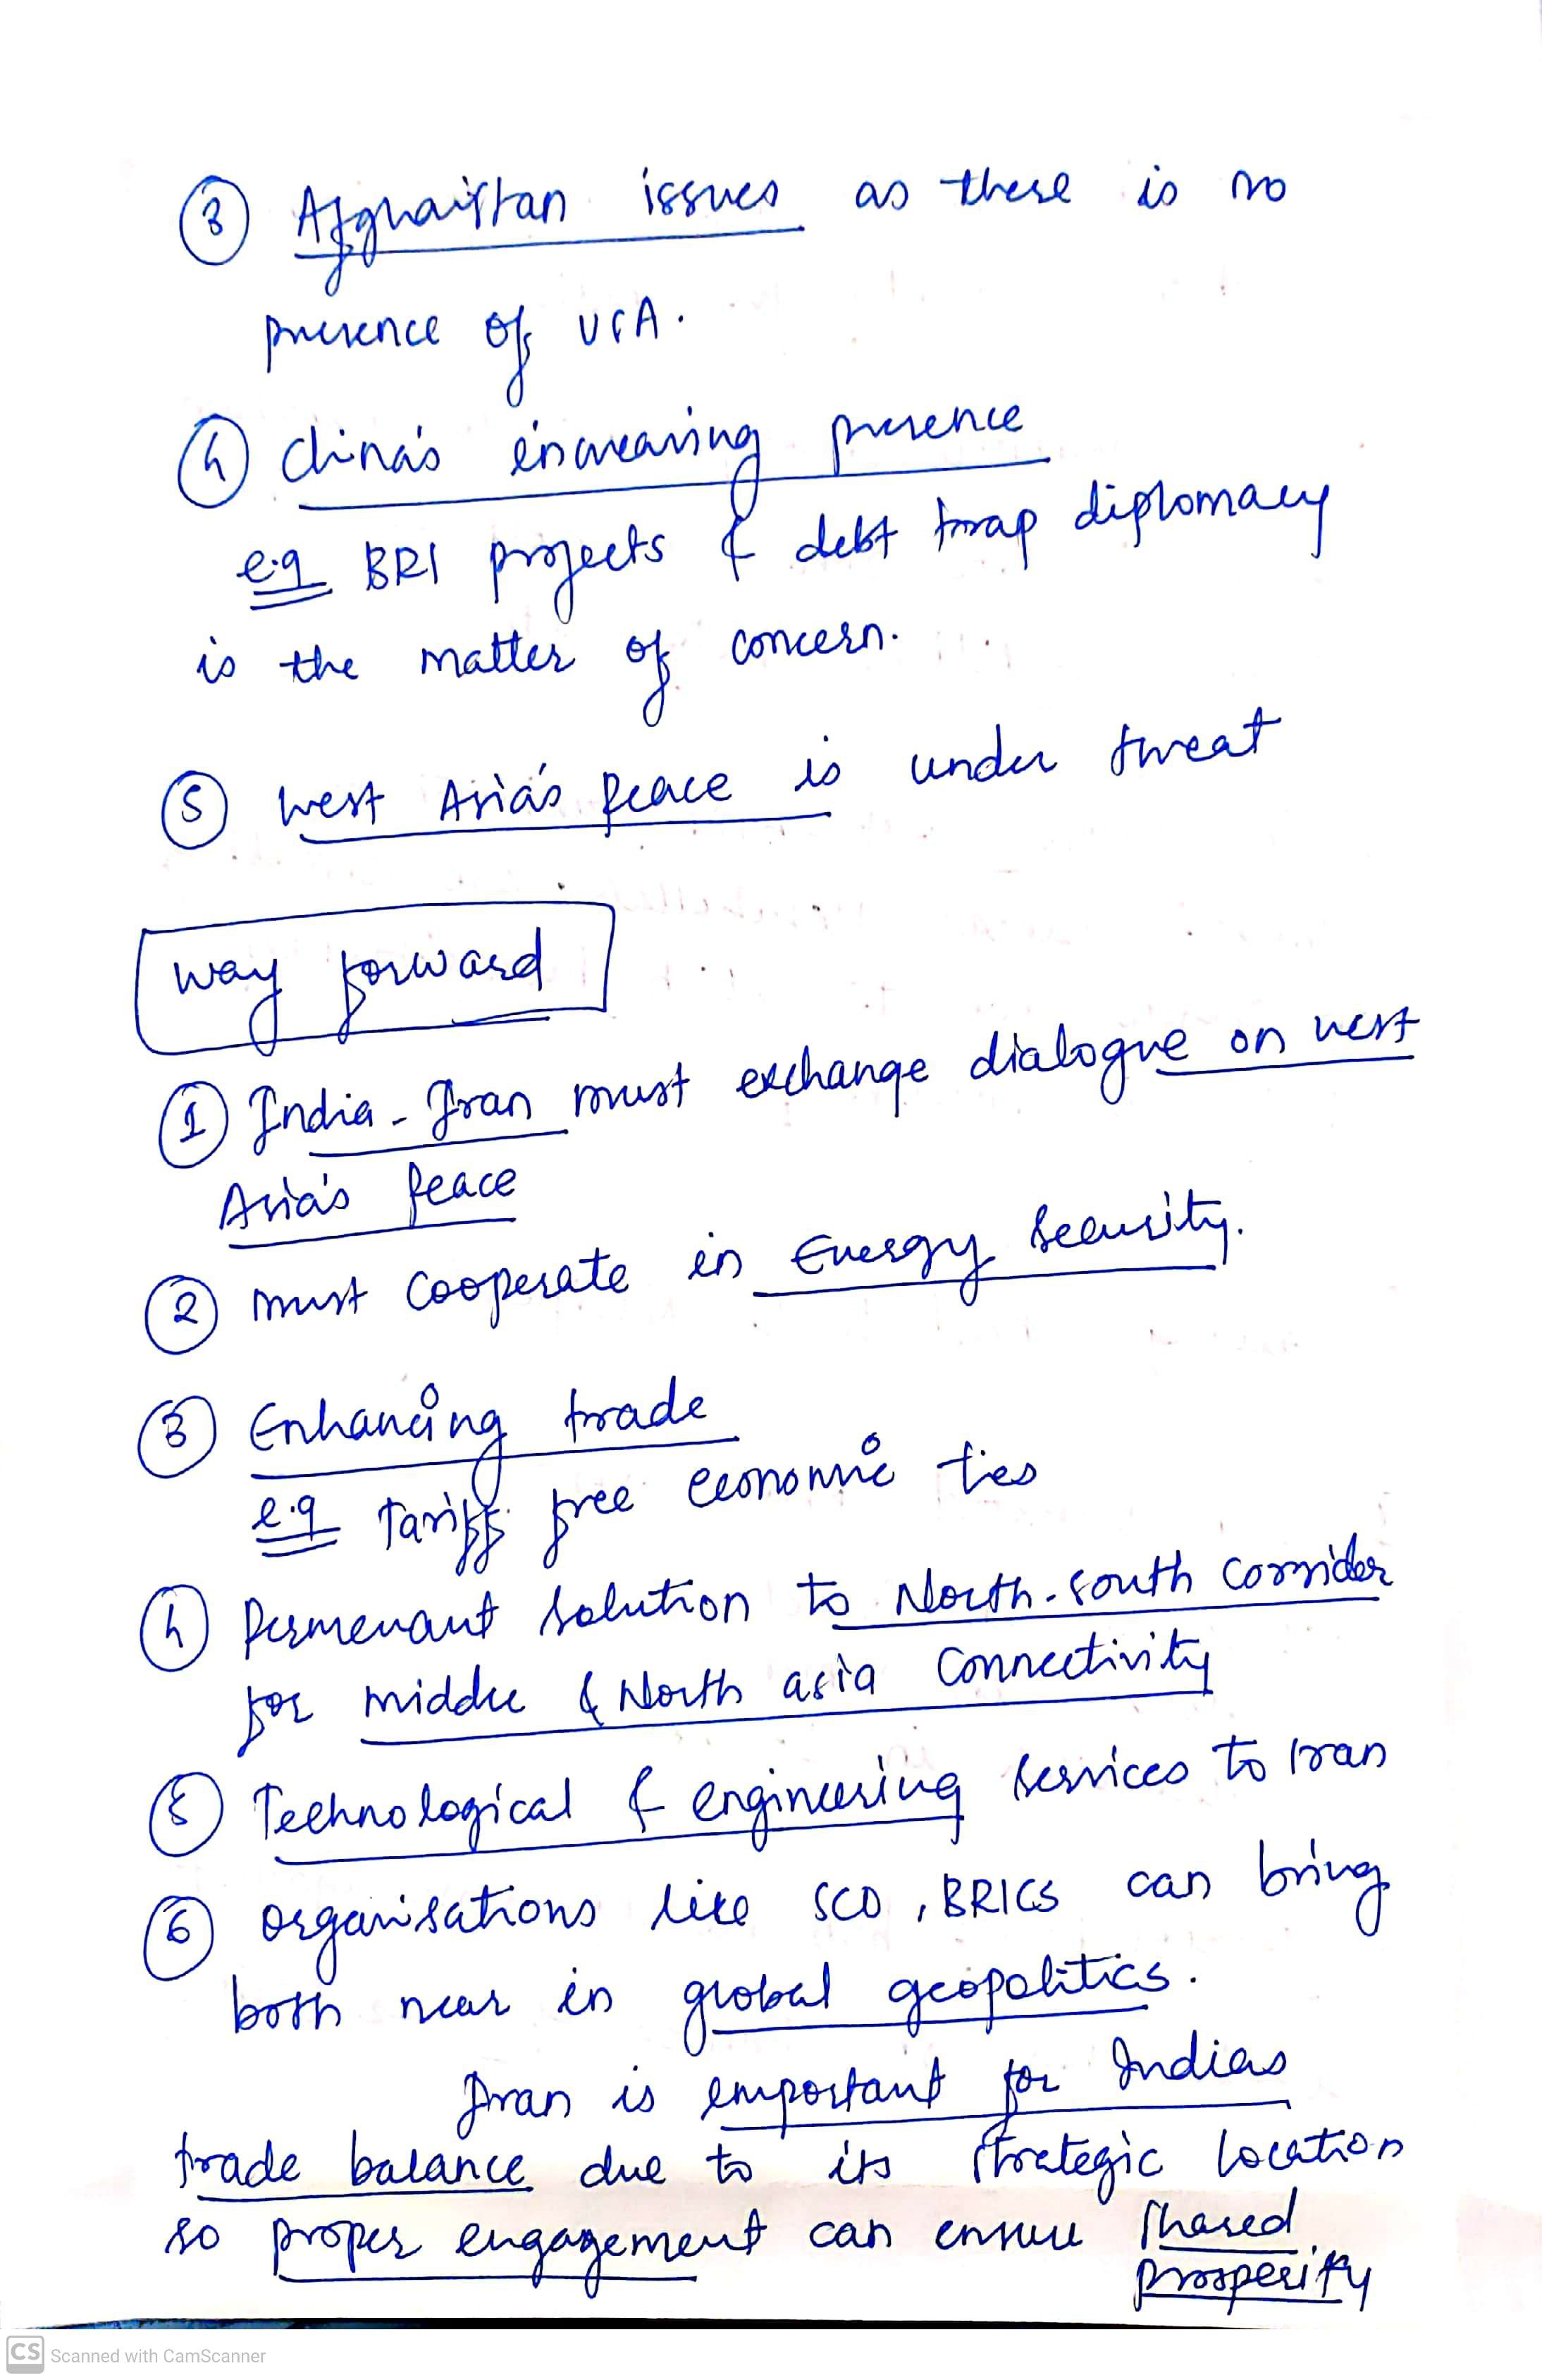 ③ Afghanistan issues as there is no
presence of USA.
④ China's increasing presence
e.g BRI projects & debt trap diplomacy
is the matter of concern.
⑤ West Asia's peace is under threat
Way forward
① India-Iran must exchange dialogue on West
Asia's Peace
② must cooperate in Energy Security.
③ Enhancing trade
e.g Tariff free economic ties
④ Permenant solution to North-South Corridor
for middle & North asia connectivity
⑤ Technological & engineering services to Iran
⑥ organisations like SCO, BRICS can bring
both near in global geopolitics.
Iran is important for Indias
trade balance due to its strategic location
so proper engagement can ensure shared
prosperity
CS Scanned with CamScanner